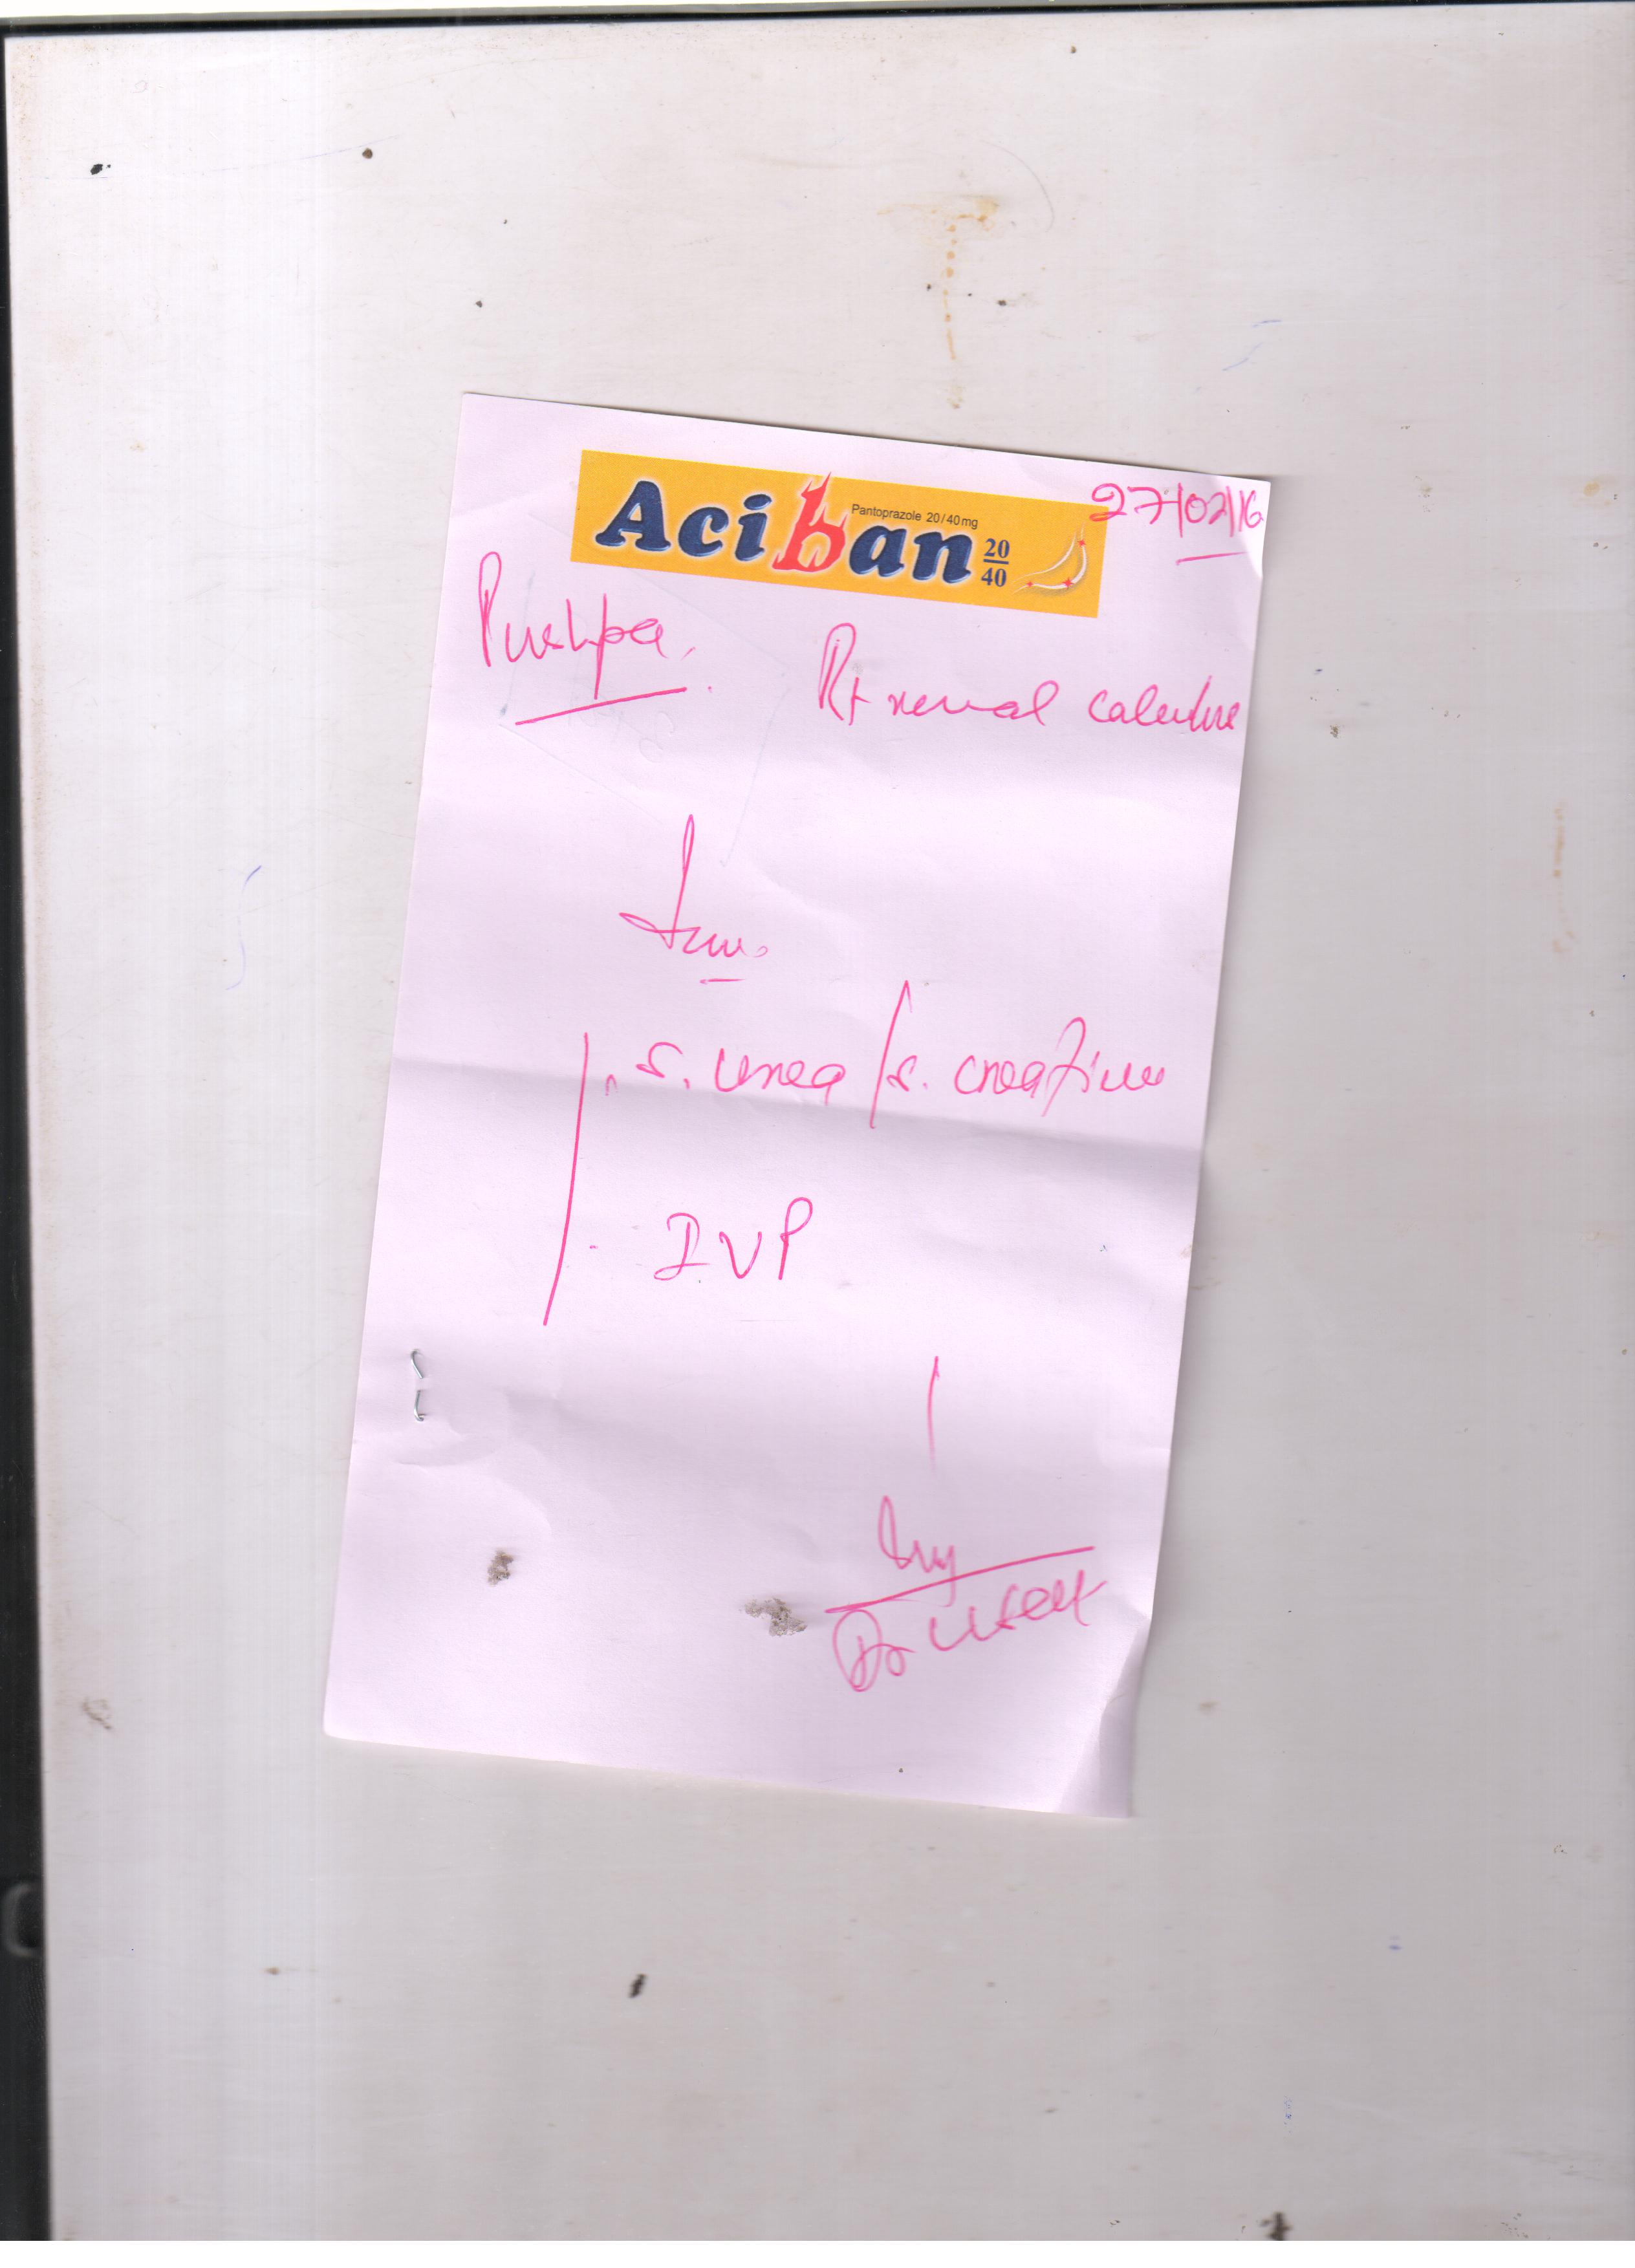 27/02/16
Aciban 20/40
Pantoprazole 20/40mg
Pushpa.
Rt renal calculus
S. urea / S. creatinine
IVP
Dr